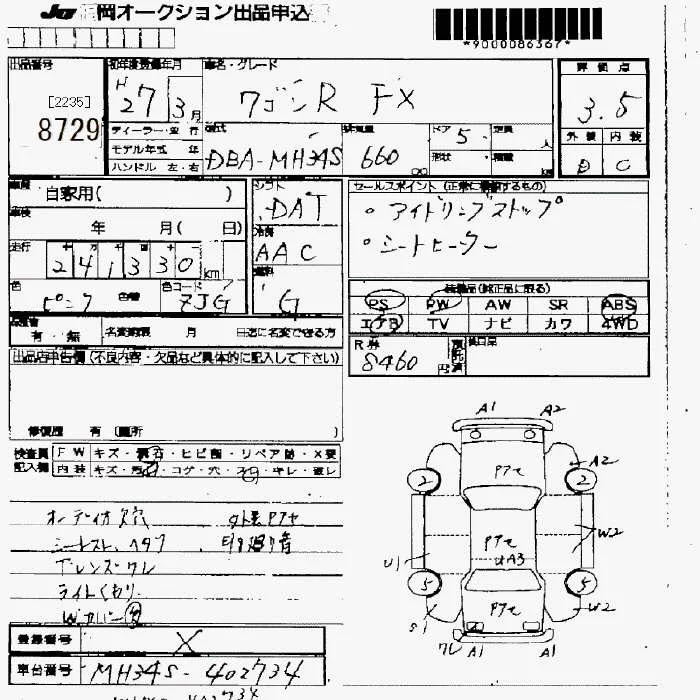 JU 岡オークション出品申込
*9000086367*
出品番号
[2235]
8729
初年度登録年月
H27 3月
車名・グレード
ワゴンR FX
評価点
3.5
外装 内装
D C
ディーラー・並行
モデル年式 年
ハンドル 左・右
型式
DBA-MH34S
排気量
660 cc
ドア 5
定員 人
形状
積載 kg
車歴 自家用( )
車検 年 月( 日)
走行 十 万 千 百 十 一
241330 km
色 ピンク 色替
色コード ZJG
シフト
DAT
冷房
AAC
燃料
G
セールスポイント(正常に機能するもの)
・アイドリングストップ
・シートヒーター
装備品(純正品に限る)
PS PW AW SR ABS
エアB TV ナビ カワ 4WD
有・無 名変期限 月 日迄に名変できる方
R券 8460円 預託済
出品店申告欄(不良内容・欠品など具体的に記入して下さい)
修復歴 有(箇所 )
検査員記入欄
FW キズ・飛石・ヒビ割・リペア跡・X要
内装 キズ・汚・コゲ・穴・・キレ・破レ
オーディオ欠穴
シートスレ、ヘタリ
レンズワレ
ライトくもり
Wカバー
登録番号 X
車台番号 MH34S-402734
A1 A2
Pアセ
A2
2 2
W2
Pアセ
A3
U1
5 5
Pアセ
S1 W2
ワレ A1 A1